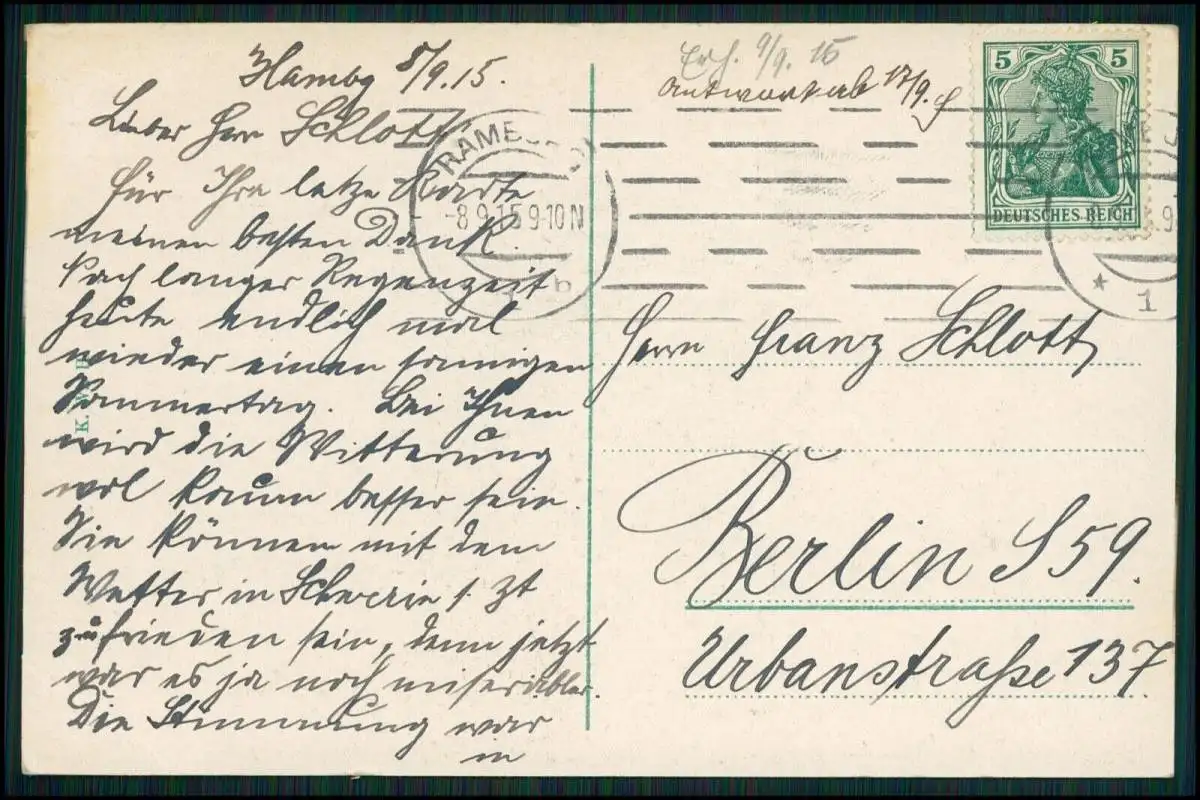 Hambg 8/9.15.
Lieber Herr Schlott!
Für Ihre letze Karte
meinen besten Dank.
Nach langer Regenzeit
heute endlich mal
wieder einen sonnigen
Sommertag. Bei Ihnen
wird die Witterung
wol kaum besser sein.
Sie können mit dem
Wetter in Schwerin s. Zt
zufrieden sein, denn jetzt
war es ja noch miserabler.
Die Stimmung war
in
Erh. 9/9. 15
Antwort ab 17/9.
5 5
DEUTSCHES REICH
-8.9.15 9-10N
b
* 1
Herrn Franz Schlott
Berlin S59.
Urbanstraße 137